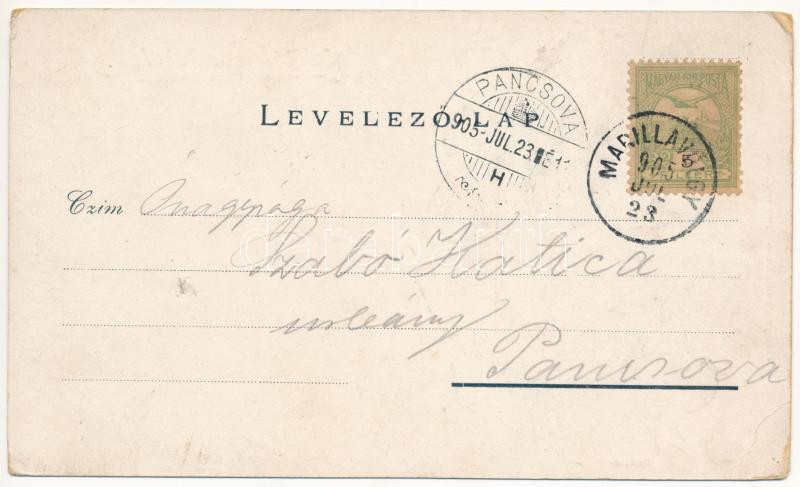 MAGYAR KIR. POSTA
LEVELEZŐ-LAP
PANCSOVA
905 JUL. 23
H
MARILLAVÖLGY
905
JUL
23
Czim Őnagysága
Szabó Katica
urleány
Pancsova
darabanth